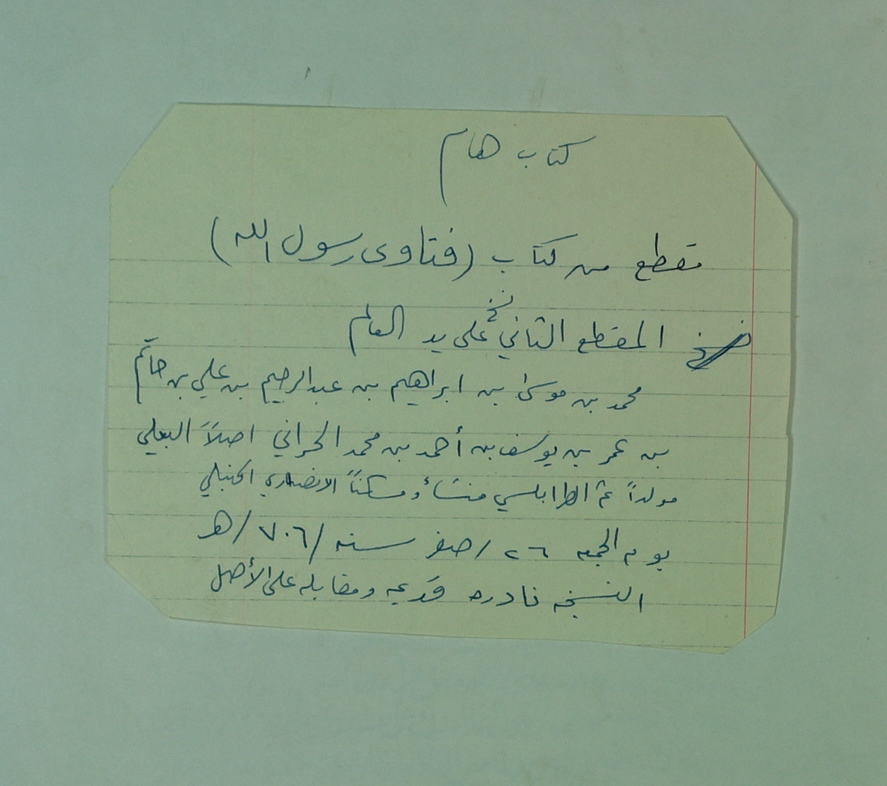 كتاب هام
مقطع من كتاب (فتاوى رسول الله)
المقطع الثاني على يد العالم
محمد بن موسى بن ابراهيم بن عبدالرحيم بن علي بن حاتم
بن عمر بن يوسف بن أحمد بن محمد الحراني اصلاً البعلي
مولداً ثم الطرابلسي منشأ ومسكناً الانصاري الحنبلي
يوم الجمعه ٢٦ /صفر سنه /٧٠٦/هـ
النسخه نادره قديمه ومقابله على الأصل